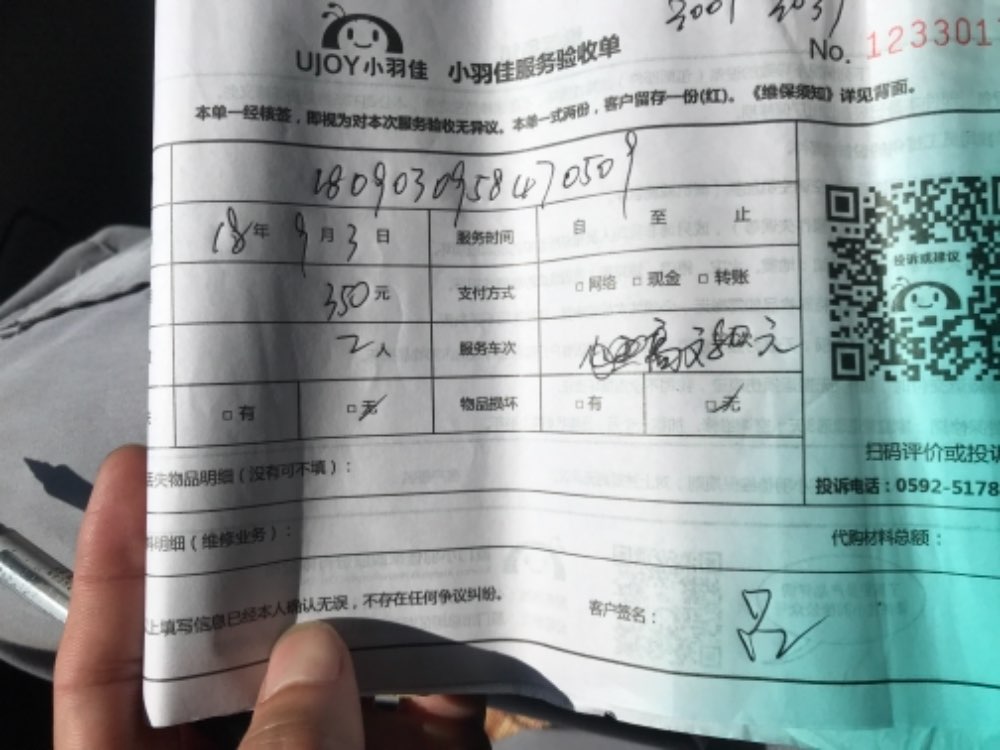 UJOY小羽佳 小羽佳服务验收单
No. 1233017
本单一经核签，即视为对本次服务验收无异议。本单一式两份，客户留存一份(红)。《维保须知》详见背面。
1809030958470509
18年 9月 3日 服务时间 自 至 止
投诉或建议
350元 支付方式 □网络 □现金 □转账
2人 服务车次
□有 □无 物品损坏 □有 □无
扫码评价或投诉
失物品明细（没有可不填）：
投诉电话：0592-5178
明细（维修业务）： 代购材料总额：
上填写信息已经本人确认无误，不存在任何争议纠纷。 客户签名：